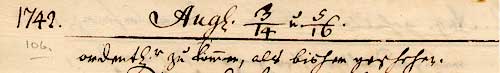 1742. Augs. 3/14 u. 5/16.
106.
ordentl.r zu kommen, als bishero geschehen.